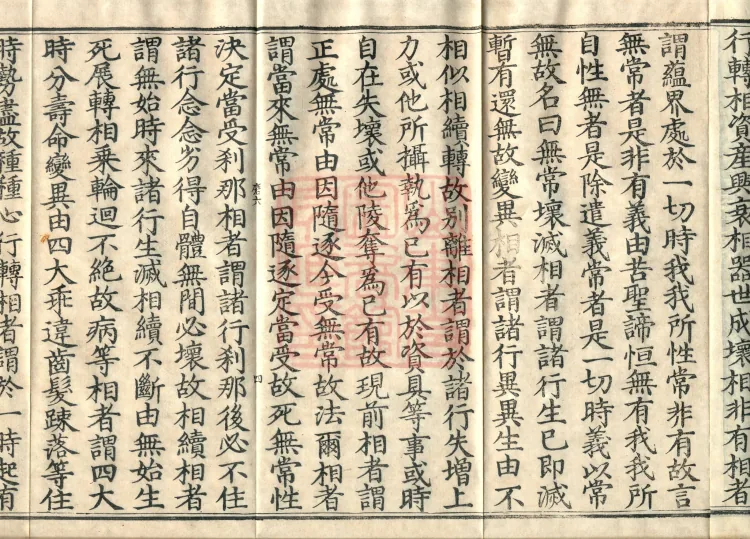 行轉相資産興衰相器世成壞相非有相者
謂蘊界處於一切時我我所性常非有故言
無常者是非有義由苦聖諦恒無有我我所
自性無者是除遣義常者是一切時義以常
無故名曰無常壞滅相者謂諸行生已即滅
暫有還無故變異相者謂諸行異異生由不
相似相續轉故別離相者謂於諸行失增上
力或他所攝執爲已有以於資具等事或時
自在失壞或他陵奪爲已有故現前相者謂
正處無常由因隨逐今受無常故法爾相者
謂當來無常由因隨逐定當受故死無常性
決定當受刹那相者謂諸行刹那後必不住
諸行念念劣得自體無間必壞故相續相者
謂無始時來諸行生滅相續不斷由無始生
死展轉相乘輪迴不絕故病等相者謂四大
時分壽命變異由四大乖違齒髮疎落等住
時勢盡故種種心行轉相者謂於一時起有
卷六
四